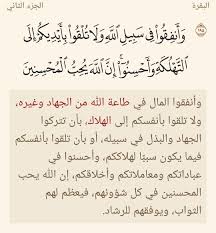 البقرة
الجزء الثاني
وَأَنفِقُوا۟ فِى سَبِيلِ ٱللَّهِ وَلَا تُلْقُوا۟ بِأَيْدِيكُمْ إِلَى
ٱلتَّهْلُكَةِ وَأَحْسِنُوٓا۟ إِنَّ ٱللَّهَ يُحِبُّ ٱلْمُحْسِنِينَ ١٩٥
وأنفقوا المال في طاعة الله من الجهاد وغيره،
ولا تلقوا بأنفسكم إلى الهلاك، بأن تتركوا
الجهاد والبذل في سبيله، أو بأن تلقوا بأنفسكم
فيما يكون سببًا لهلاككم، وأحسنوا في
عباداتكم ومعاملاتكم وأخلاقكم، إن الله يحب
المحسنين في كل شؤونهم، فيعظم لهم
الثواب، ويوفقهم للرشاد.